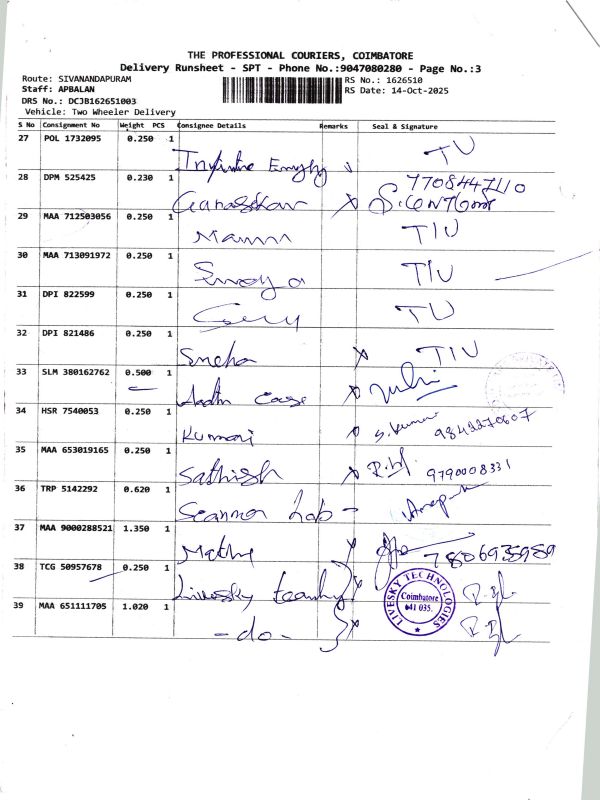 THE PROFESSIONAL COURIERS, COIMBATORE
Delivery Runsheet - SPT - Phone No.:9047080280 - Page No.:3
Route: SIVANANDAPURAM
RS No.: 1626510
Staff: APBALAN
RS Date: 14-Oct-2025
DRS No.: DCJB162651003
Vehicle: Two Wheeler Delivery
S No Consignment No Weight PCS Consignee Details Remarks Seal & Signature
27 POL 1732095 0.250 1
TU
28 DPM 525425 0.230 1
29 MAA 712503056 0.250 1
TIU
30 MAA 713091972 0.250 1
TIU
31 DPI 822599 0.250 1
TU
32 DPI 821486 0.250 1
Sneha x TIU
33 SLM 380162762 0.500 1
34 HSR 7540053 0.250 1
Kumari x S.Kumar 9842270607
35 MAA 653019165 0.250 1
Sathish x 9790008331
36 TRP 5142292 0.620 1
Scanmor Lab -
37 MAA 9000288521 1.350 1
7806935989
38 TCG 50957678 0.250 1
Livesky
LIVESKY TECHNOLOGIES
Coimbatore
641 035.
39 MAA 651111705 1.020 1
-do- x